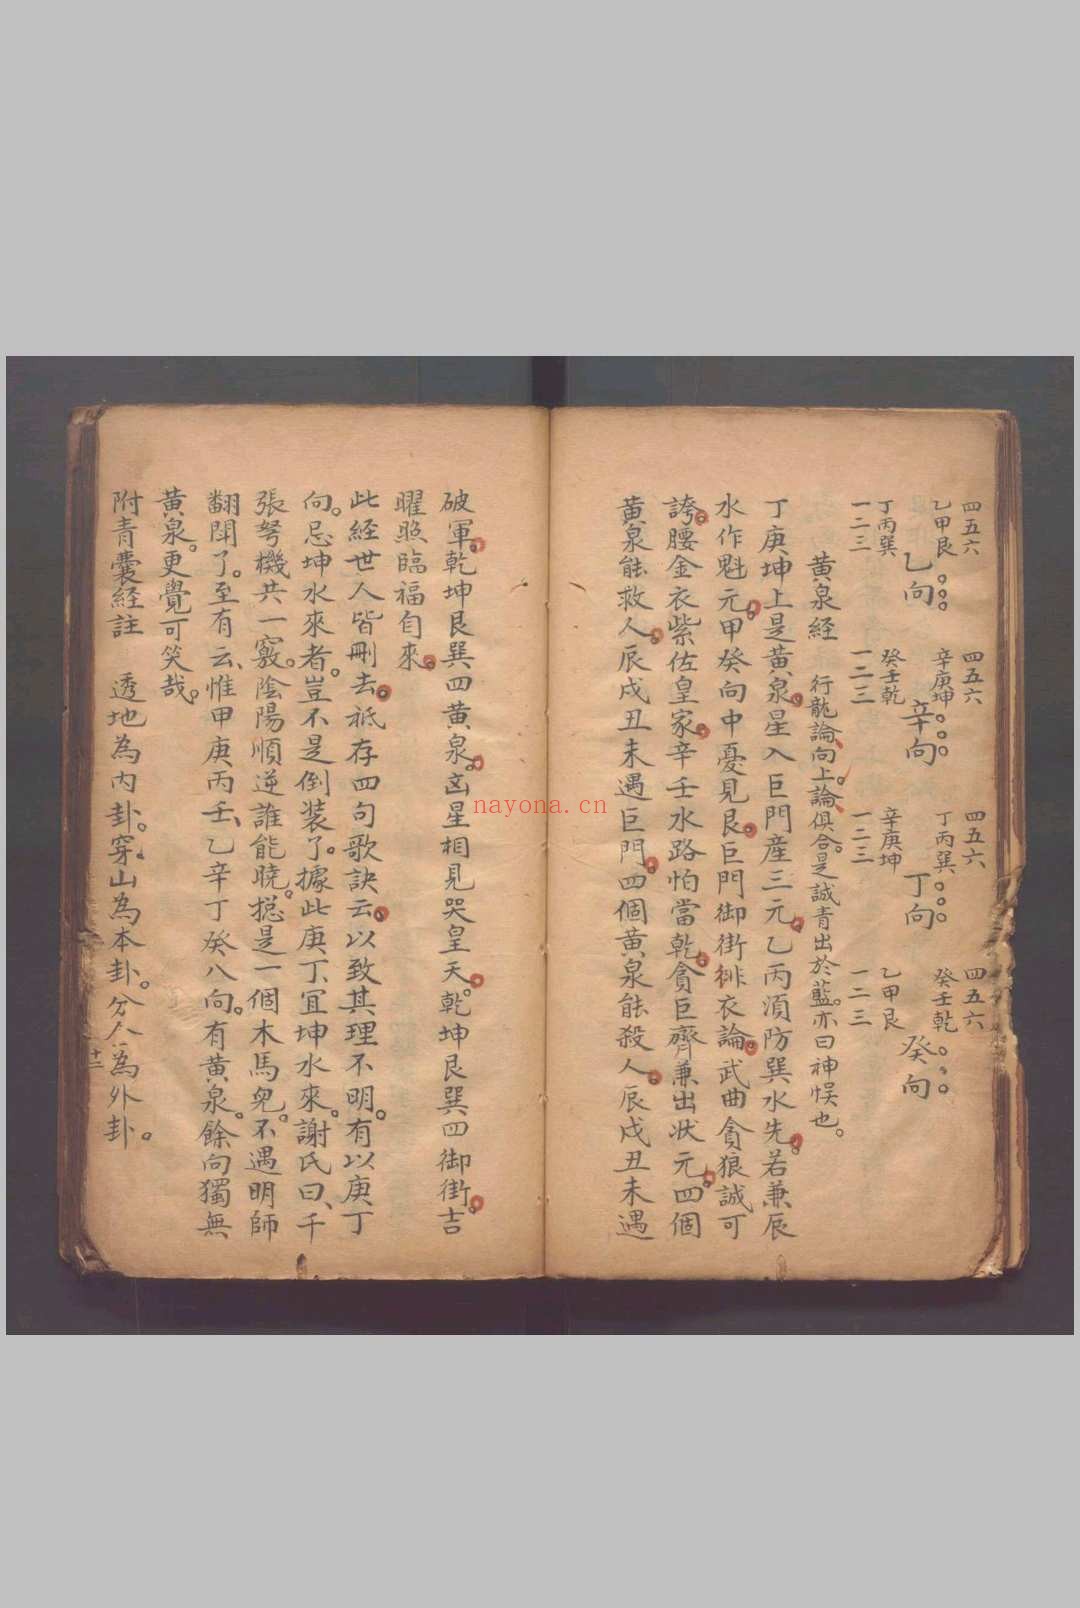 四五六
乙甲艮
乙向
丁丙巽
一二三
四五六
辛庚坤
辛向
癸壬乾
一二三
四五六
丁丙巽
丁向
辛庚坤
一二三
四五六
癸壬乾
癸向
乙甲艮
一二三
黄泉經 行龍論向上論俱合。是誠青出於藍。亦曰神悞也。
丁庚坤上是黄泉。星入巨門産三元。乙丙須防巽水先。若兼辰
水作魁元。甲癸向中憂見艮。巨門御街緋衣論。武曲貪狼誠可
誇。腰金衣紫佐皇家。辛壬水路怕當乾。貪巨齊兼出狀元。四個
黄泉能救人。辰戌丑未遇巨門。四個黄泉能殺人。辰戌丑未遇
破軍。乾坤艮巽四黄泉。凶星相見哭皇天。乾坤艮巽四御街。吉
曜照臨福自來。
此經世人皆刪去。祗存四句歌訣云。以致其理不明。有以庚丁
向。忌坤水來者。豈不是倒装了。據此庚丁、宜坤水來。謝氏曰、千
張弩機共一竅。陰陽順逆誰能曉。搃是一個木馬兒。不遇明師
翻閙了。至有云、惟甲庚丙壬、乙辛丁癸八向。有黄泉。餘向獨無
黄泉。更覺可笑哉。
附青囊經註 透地為内卦。穿山為本卦。分金為外卦。
十二
nayona.cn